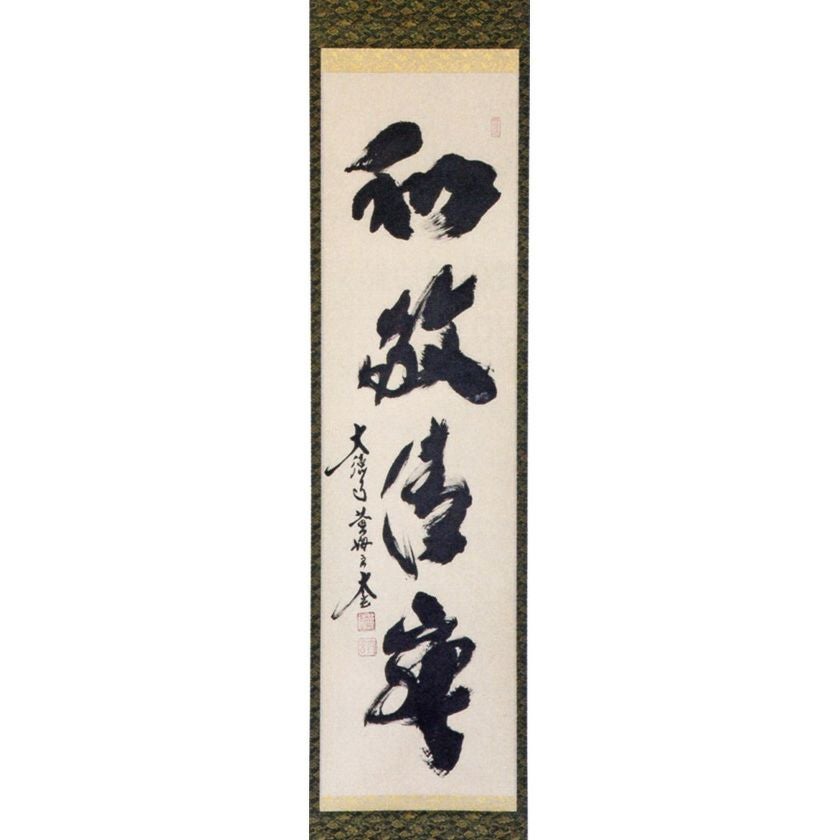 和敬清寂
大徳寺 黄梅 太玄